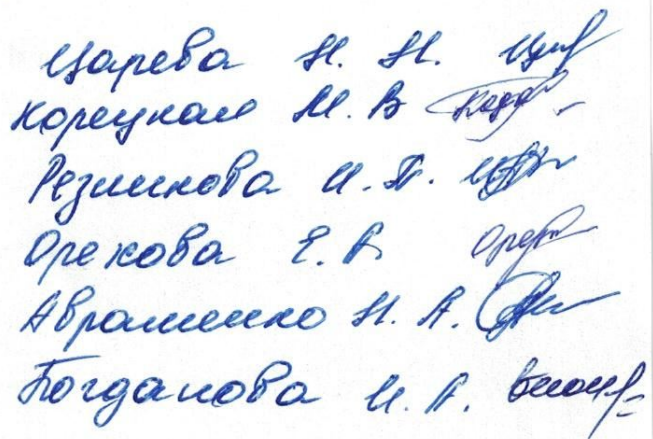 Царева Н. Н.
Корецкая М. В
Резникова И. П.
Орехова Е. А
Авраменко Н. А.
Богданова И. А.